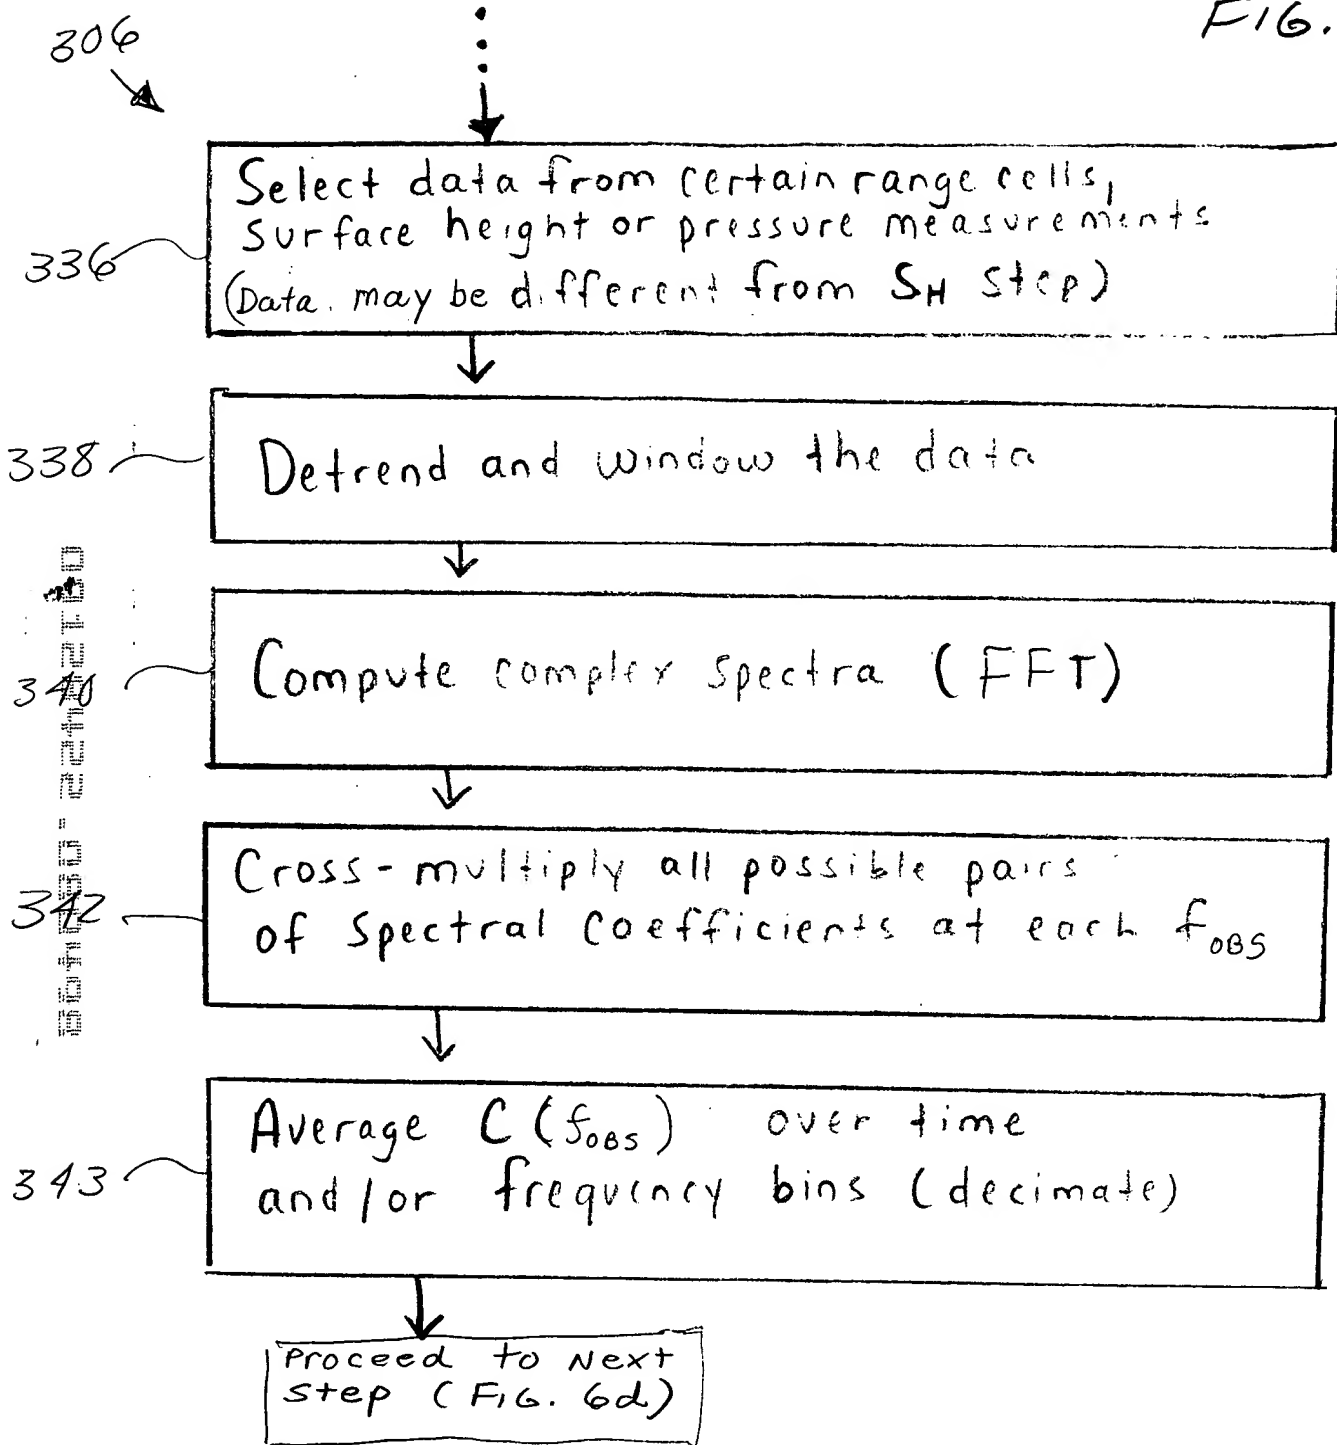 FIG.
306
Select data from certain range cells,
surface height or pressure measurements
(Data may be different from SH step)
336
Detrend and window the data
338
Compute complex spectra (FFT)
340
Cross-multiply all possible pairs
of spectral coefficients at each fOBS
342
Average C(fOBS) over time
and/or frequency bins (decimate)
343
Proceed to Next
step (FIG. 6d)